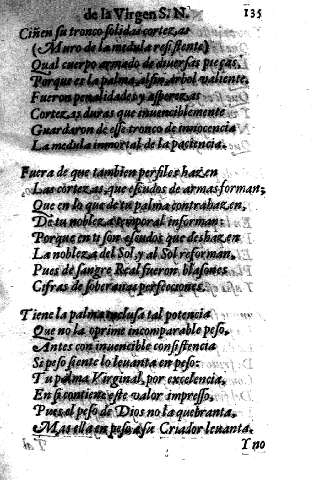 de la Virgen S. N. 135
Ciñen su tronco solidas cortezas
(Muro de la medula resistente)
Qual cuerpo armado de diuersas pieças,
Porque es la palma, alfin, arbol valiente,
Fueron penalidades y asperezas
Cortezas duras que inuenciblemente
Guardaron de esse tronco de innocencia
La medula inmortal de la paciencia.
Fuera de que tambien perfiles hazen
Las cortezas, que escudos de armas forman;
Que en lo que de tu palma contrahazen,
De tu nobleza temporal informan:
Porque en ti son escudos que deshazen
La nobleza del Sol, y al Sol reforman,
Pues de sangre Real fueron blasones
Cifras de soberanas perfecciones.
Tiene la palma inclusa tal potencia
Que no la oprime incomparable peso,
Antes con inuencible consistencia
Si peso siente lo leuanta en peso:
Tu palma Virginal, por excelencia,
En si contiene este valor impresso,
Pues al peso de Dios no la quebranta,
Mas ella en peso a su Criador leuanta.
Y no